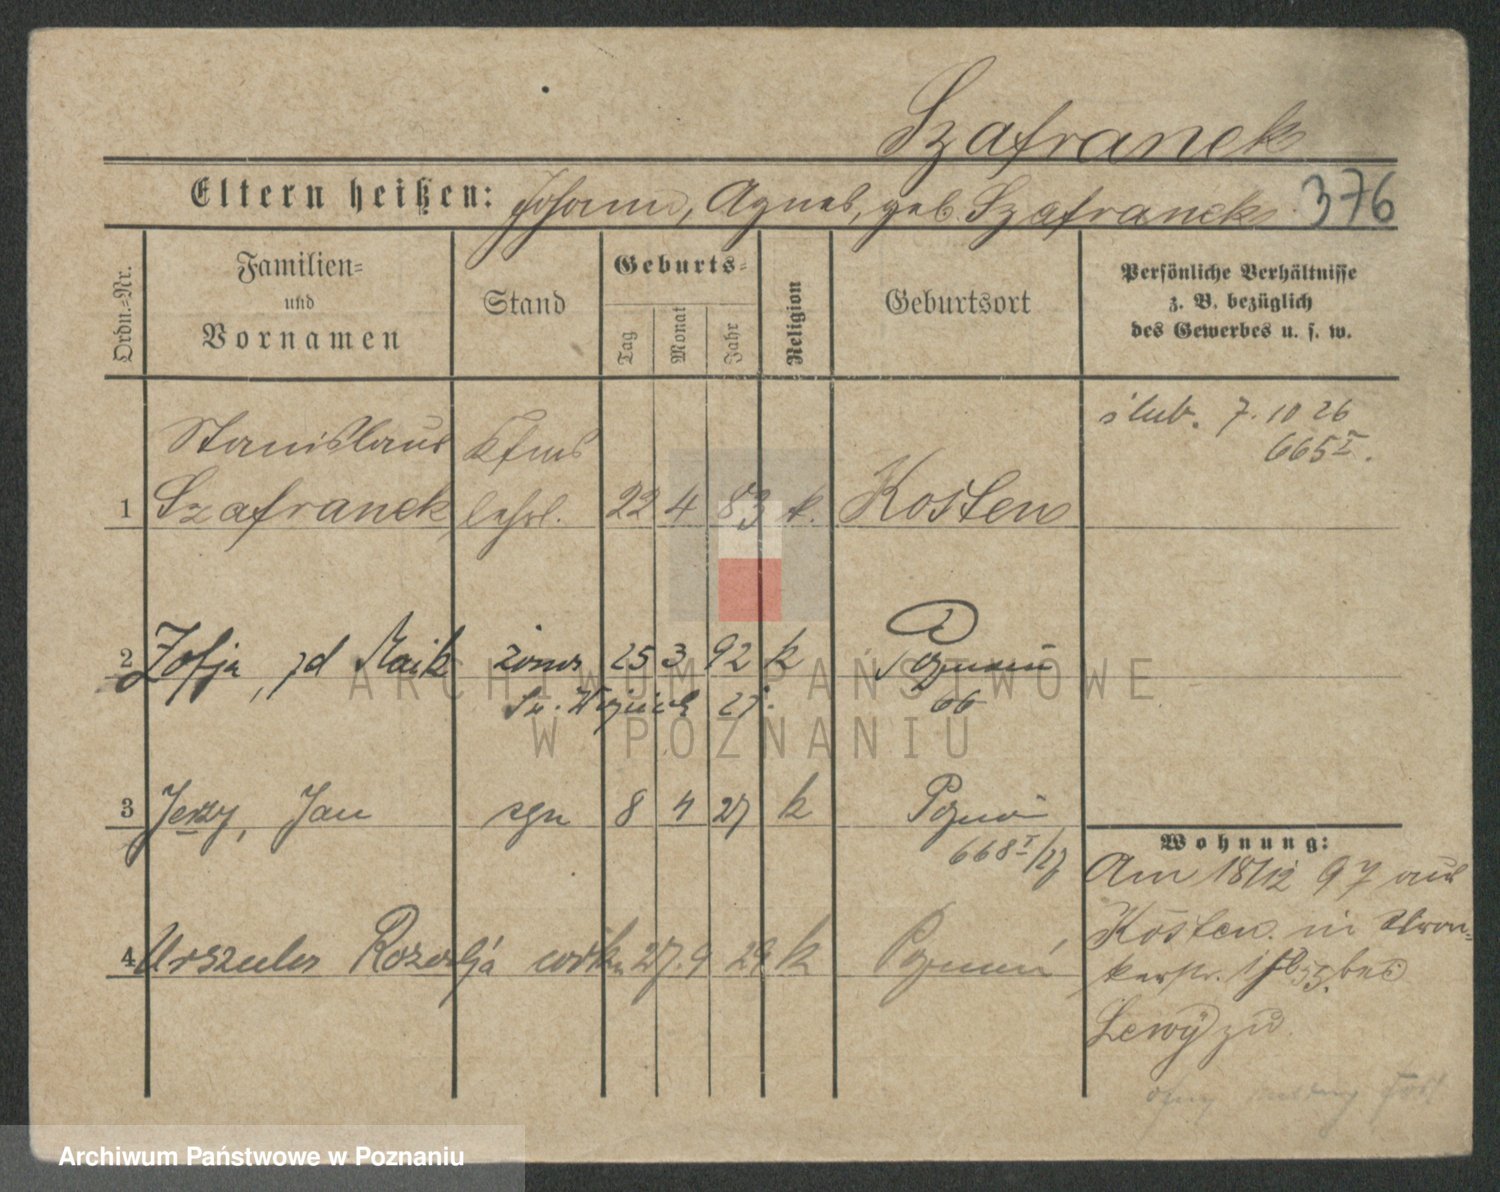 Szafranek
Eltern heißen: Johann, Agnes, geb. Szafranek. 376
Ordn.=Nr.
Familien=
und
Vornamen
Stand
Geburts=
Tag
Monat
Jahr
Religion
Geburtsort
Persönliche Verhältnisse
z. B. bezüglich
des Gewerbes u. s. w.
Stanislaus Kfms
ślub. 7. 10 26
665 I.
1 Szafranek lehrl. 22 4 83 k. Kosten
2 Zofja, zd Maik żona 25 3 92 k Poznań
27. 66
3 Jerzy, Jan syn 8 4 27 k Poznań
668 I/27
4 Urszula Rozalja córka 27. 9 29 k Poznań
Wohnung:
Am 18/12 97 aus
Kosten in Wron=
kerstr. bei
Lewy zu
ARCHIWUM PAŃSTWOWE
W POZNANIU
Archiwum Państwowe w Poznaniu